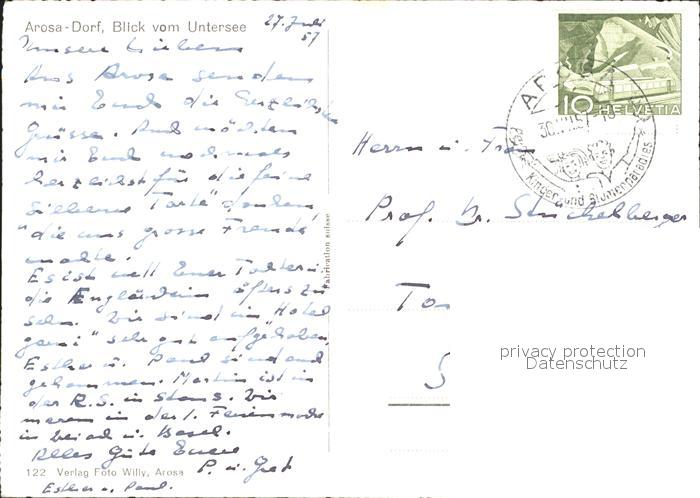 Arosa-Dorf, Blick vom Untersee
27. Juli
57
Unsere Lieben
Aus Arosa senden
wir Euch die herzlichsten
Grüsse. Und möchten
wir Euch nochmals
herzlichst für die feine
"silberne Torte" danken,
die uns grosse Freude
machte.
Es ist nett Eure Tochter u.
die Engländerin öfters zu
sehn. Wir sind im Hotel
garni sehr gut aufgehoben.
Esther u. Paul sind auch
gekommen. Martin ist in
der R.S. in Stans. Wir
waren in der 1. Ferienwoche
in u. Basel.
Alles Gute Euere
P. u. Gret
Esther u. Paul.
122 Verlag Foto Willy, Arosa
Fabrication suisse
10 HELVETIA
AROSA
Kinder- und Blumenparadies
Herrn u. Frau
Prof. Dr. Stückelberger
privacy protection
Datenschutz